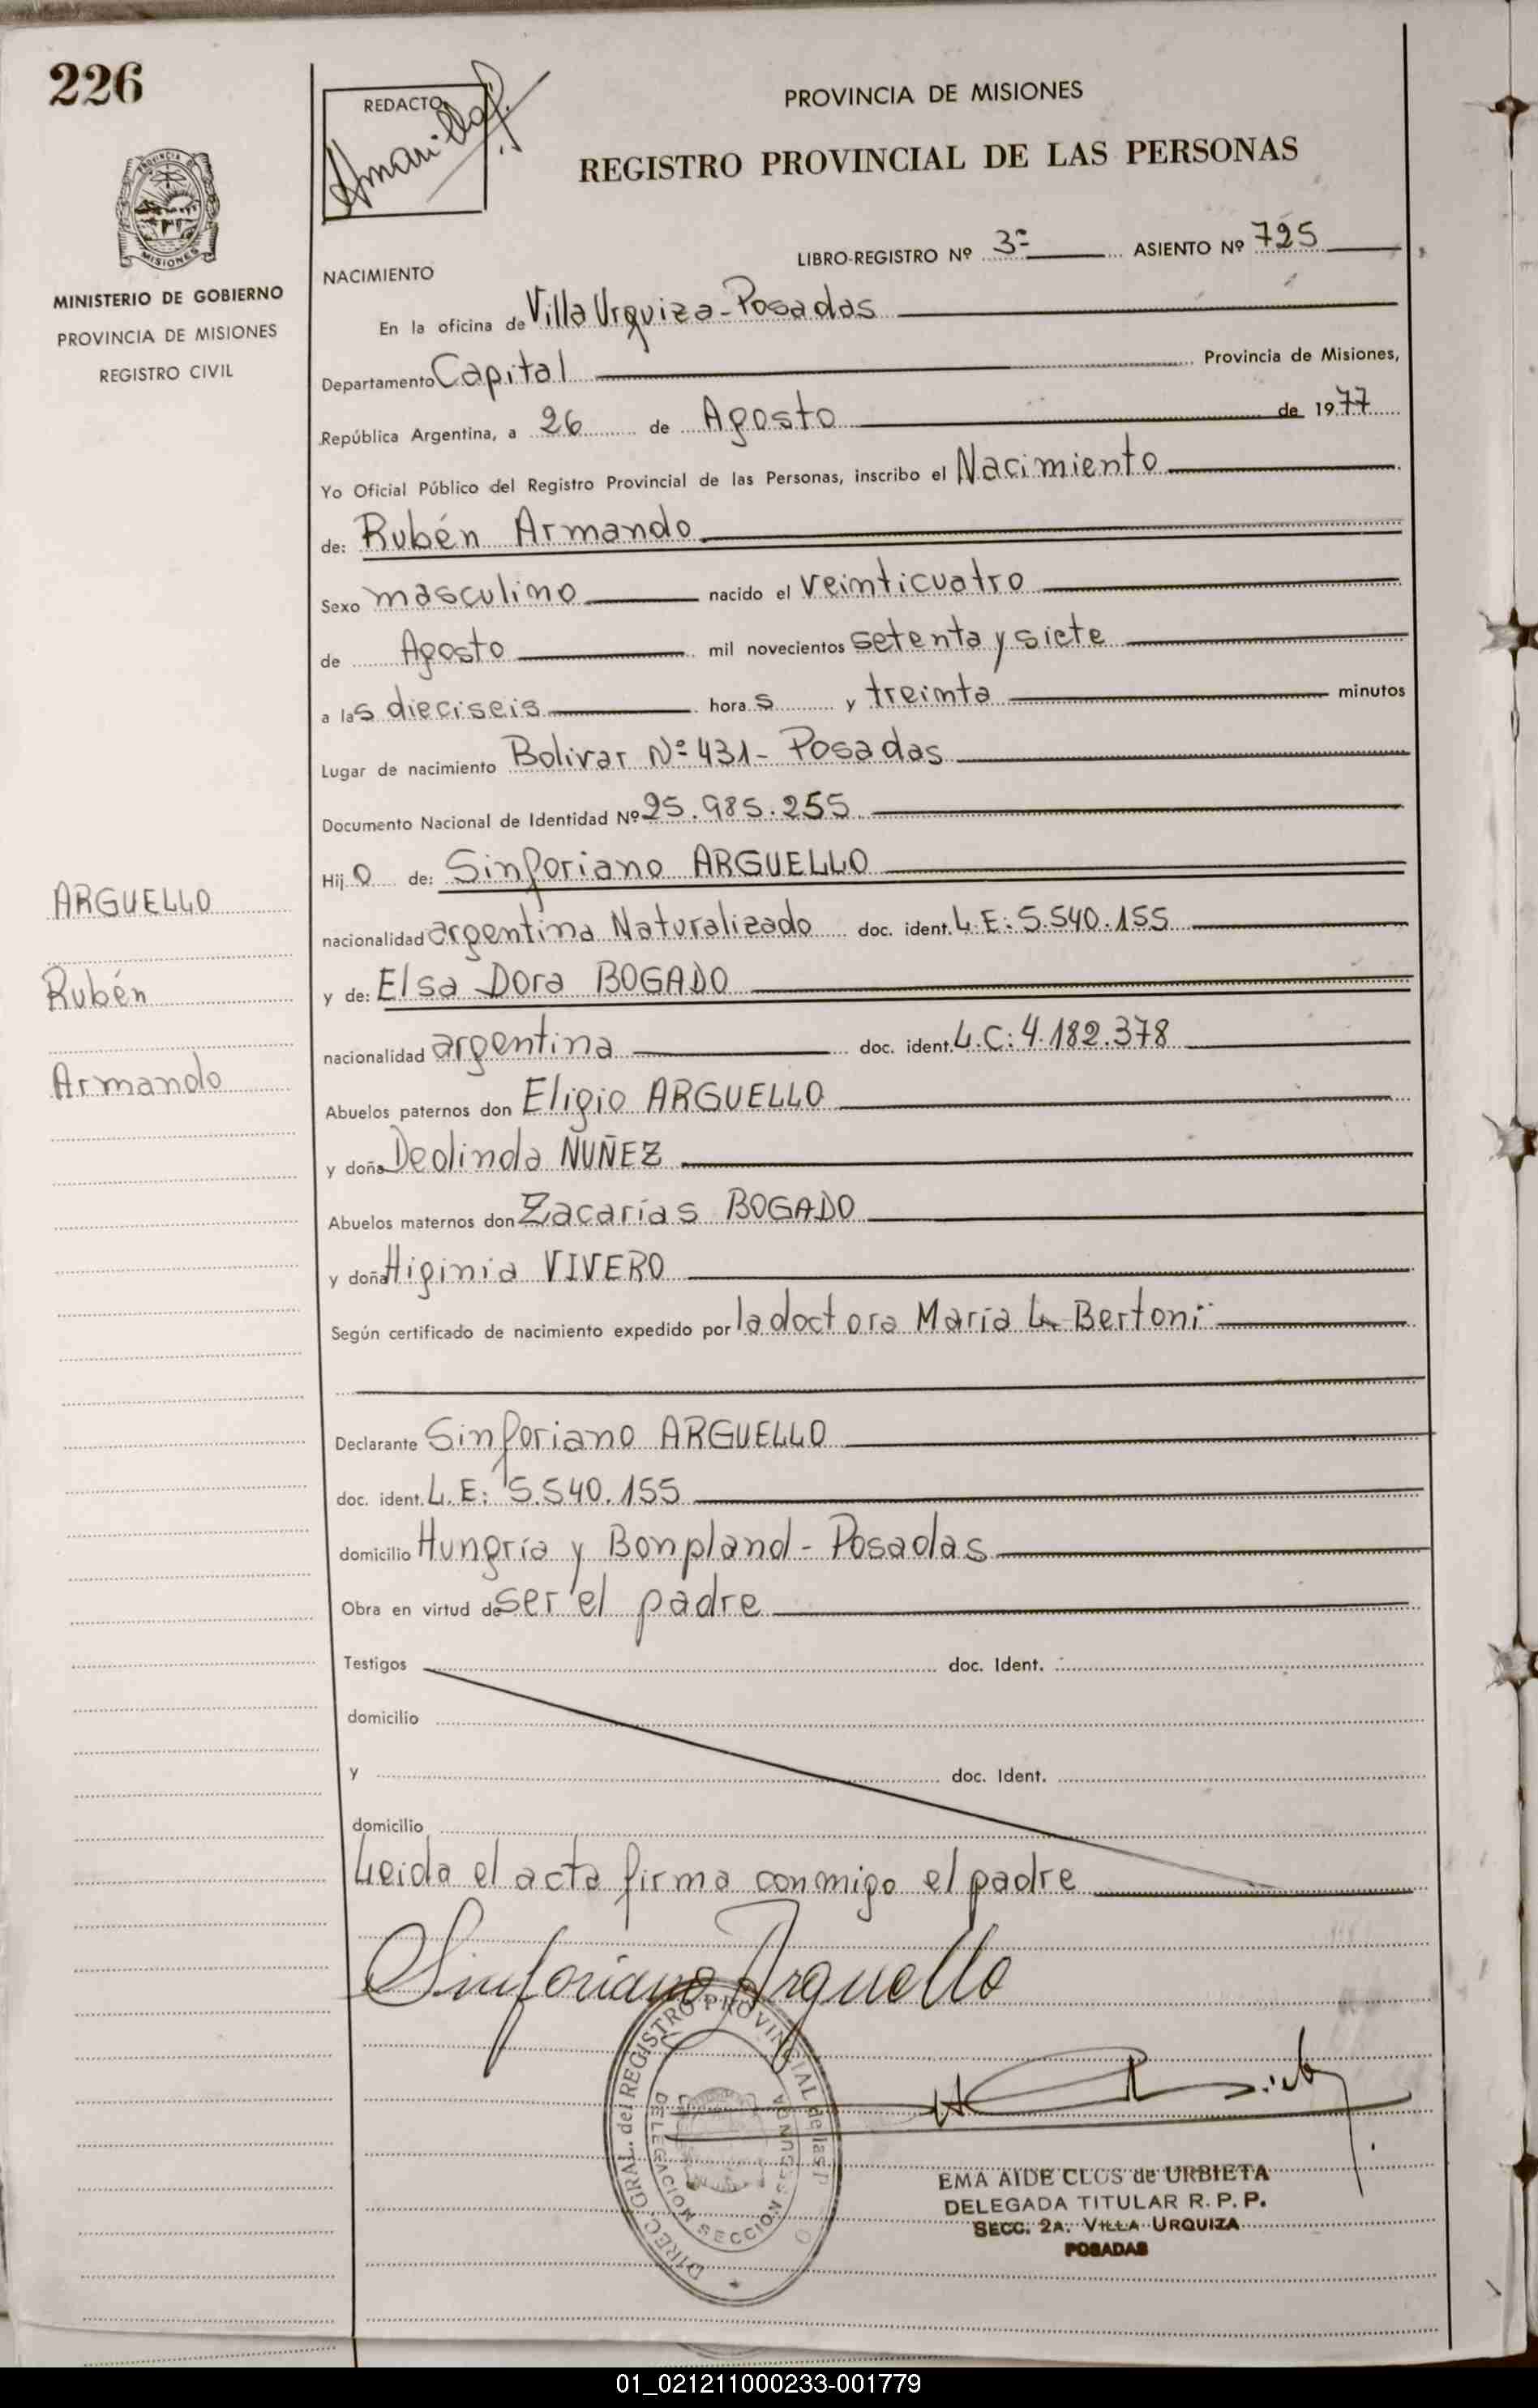 226
REDACTO
Amarilla
PROVINCIA DE MISIONES
REGISTRO PROVINCIAL DE LAS PERSONAS
PROVINCIA DE
MISIONES
MINISTERIO DE GOBIERNO
PROVINCIA DE MISIONES
REGISTRO CIVIL
LIBRO-REGISTRO Nº 3º ASIENTO Nº 725
NACIMIENTO
En la oficina de Villa Urquiza - Posadas
Departamento Capital Provincia de Misiones,
República Argentina, a 26 de Agosto de 1977
Yo Oficial Público del Registro Provincial de las Personas, inscribo el Nacimiento
de: Rubén Armando
Sexo masculino nacido el veinticuatro
de Agosto mil novecientos setenta y siete
a las dieciseis horas y treinta minutos
Lugar de nacimiento Bolivar Nº 431 - Posadas
Documento Nacional de Identidad Nº 25.985.255
Hijo de: Sinforiano ARGUELLO
nacionalidad argentina Naturalizado doc. ident. L.E: 5.540.155
y de: Elsa Dora BOGADO
nacionalidad argentina doc. ident. L.C: 4.182.378
Abuelos paternos don Eligio ARGUELLO
y doña Deolinda NUÑEZ
Abuelos maternos don Zacarías BOGADO
y doña Higinia VIVERO
Según certificado de nacimiento expedido por la doctora María L. Bertoni
ARGUELLO
Rubén
Armando
Declarante Sinforiano ARGUELLO
doc. ident. L.E: 5.540.155
domicilio Hungría y Bonpland - Posadas
Obra en virtud de ser el padre
Testigos doc. Ident.
domicilio
y doc. Ident.
domicilio
Leida el acta firma conmigo el padre
Sinforiano Arguello
DIREC. GRAL. del REGISTRO PROVINCIAL de las P
DELEGACION SECCION SEGUNDA
EMA AIDE CLOS de URBIETA
DELEGADA TITULAR R. P. P.
SECC. 2A. VILLA URQUIZA
POSADAS
01_021211000233-001779